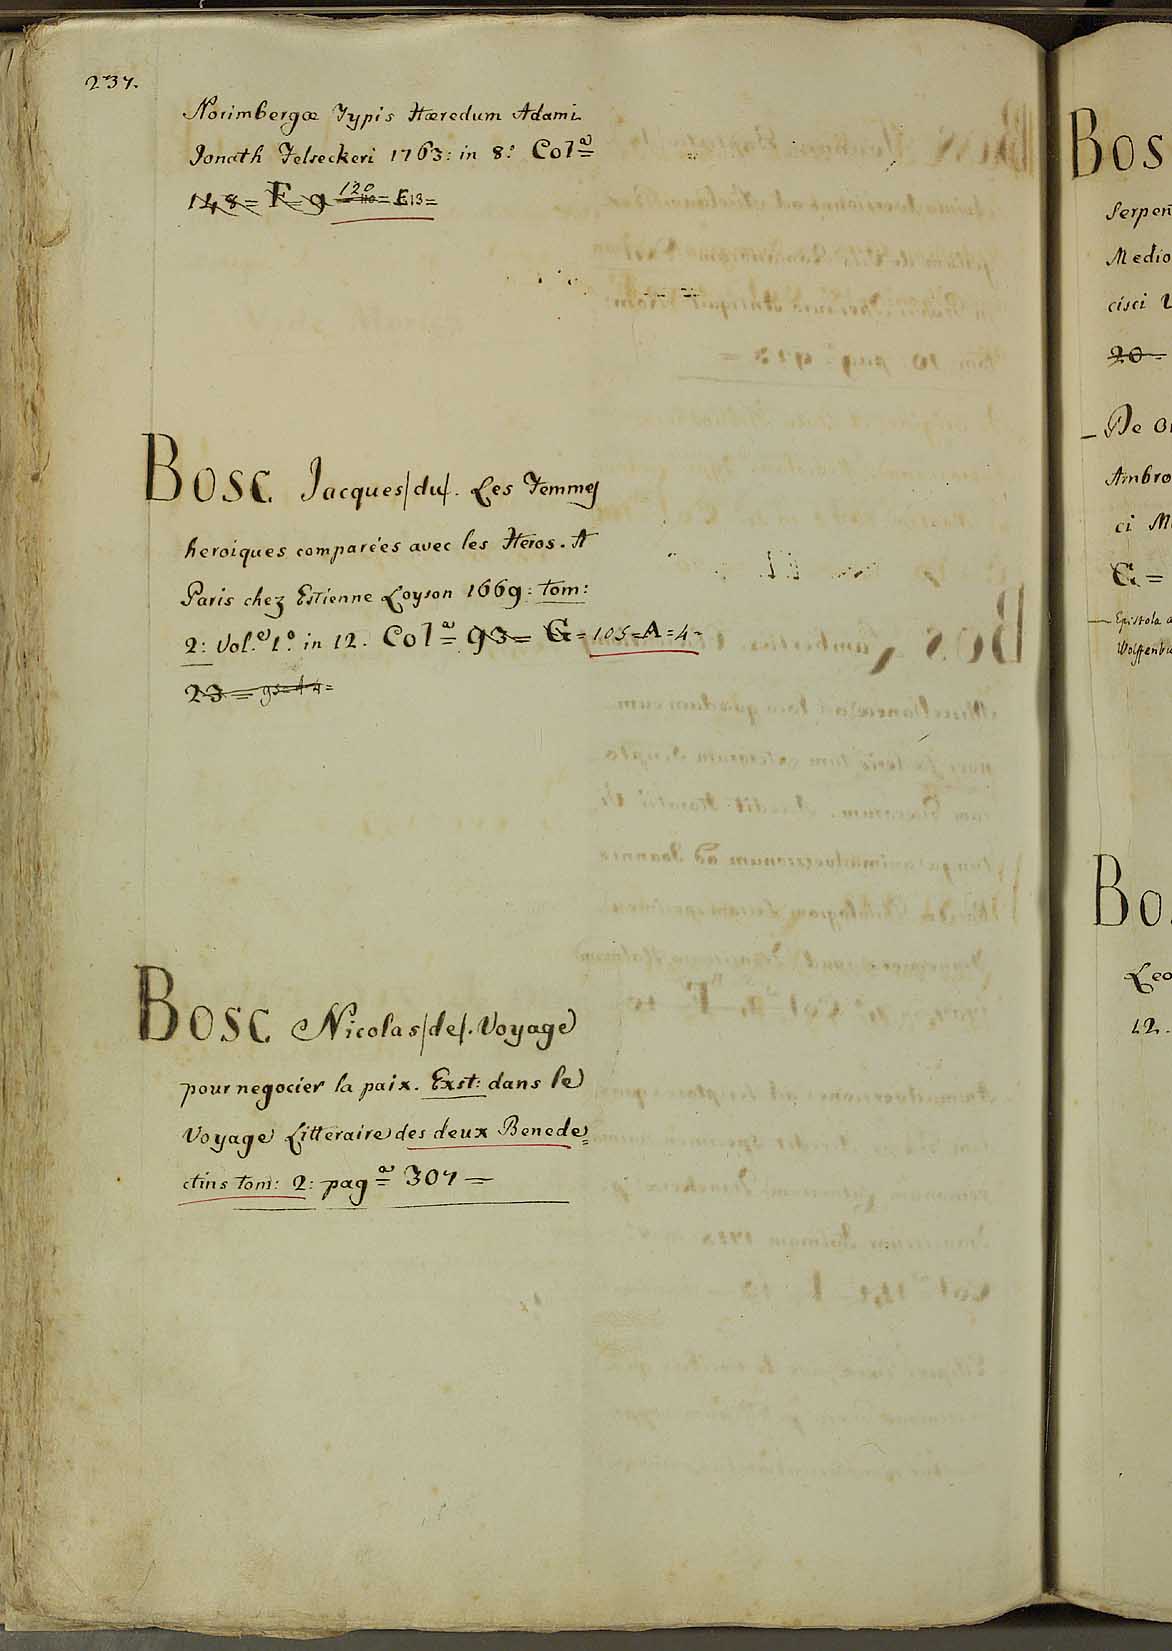 237.
Norimbergæ Typis Hæredum Adami
Jonath Felseckeri 1763: in 8.° Col.ª=
148= F= 9 120 = E 13=
BOSC Jacques/du/. Les Femmes
heroiques comparées avec les Heros. A
Paris chez Estienne Loyson 1669: tom:
2: Vol.e 1.° in 12. Col.ª= 93= G= 105=A=4=
23= 95=A 4=
BOSC Nicolas/de/. Voyage
pour negocier la paix. Exst: dans le
Voyage Litteraire des deux Benede=
ctins tom: 2: pag.ª= 307=
Bos
Serpen
Medio
cisci
20=
De
Ambro
ci M
G=
Epistola
Wolffenbu
Bo
Leo
12.